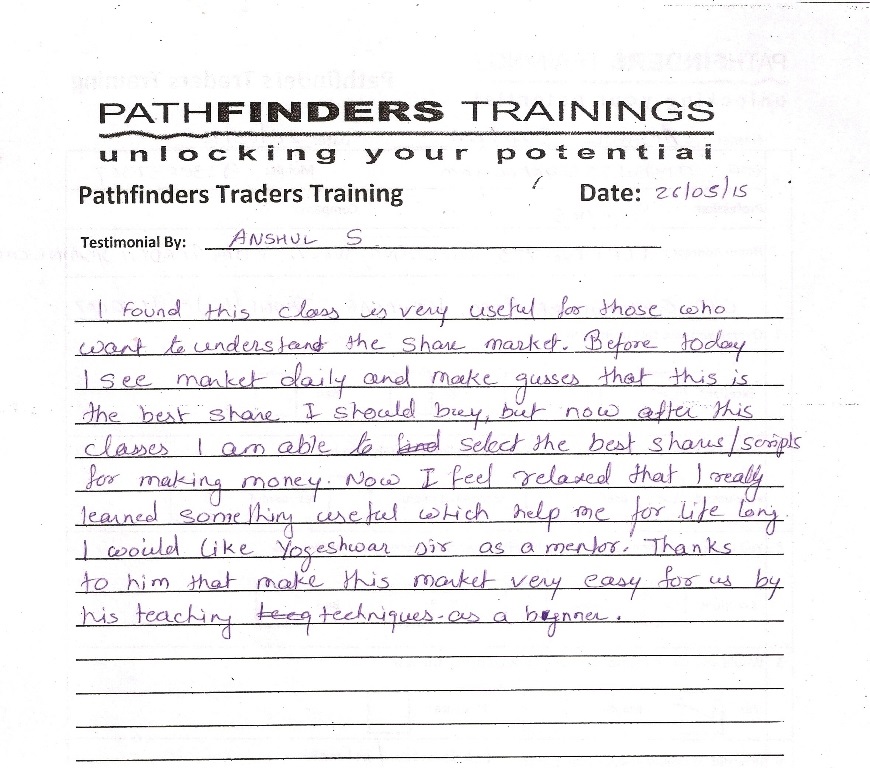 PATHFINDERS TRAININGS
unlocking your potential
Pathfinders Traders Training Date: 26/05/15
Testimonial By: ANSHUL S
I found this class is very useful for those who
want to understand the share market. Before today
I see market daily and make gusses that this is
the best share I should buy, but now after this
classes I am able to find select the best shares/scripts
for making money. Now I feel relaxed that I really
learned something useful which help me for life long.
I would like Yogeshwar sir as a mentor. Thanks
to him that make this market very easy for us by
his teaching teeq techniques. as a bignner.